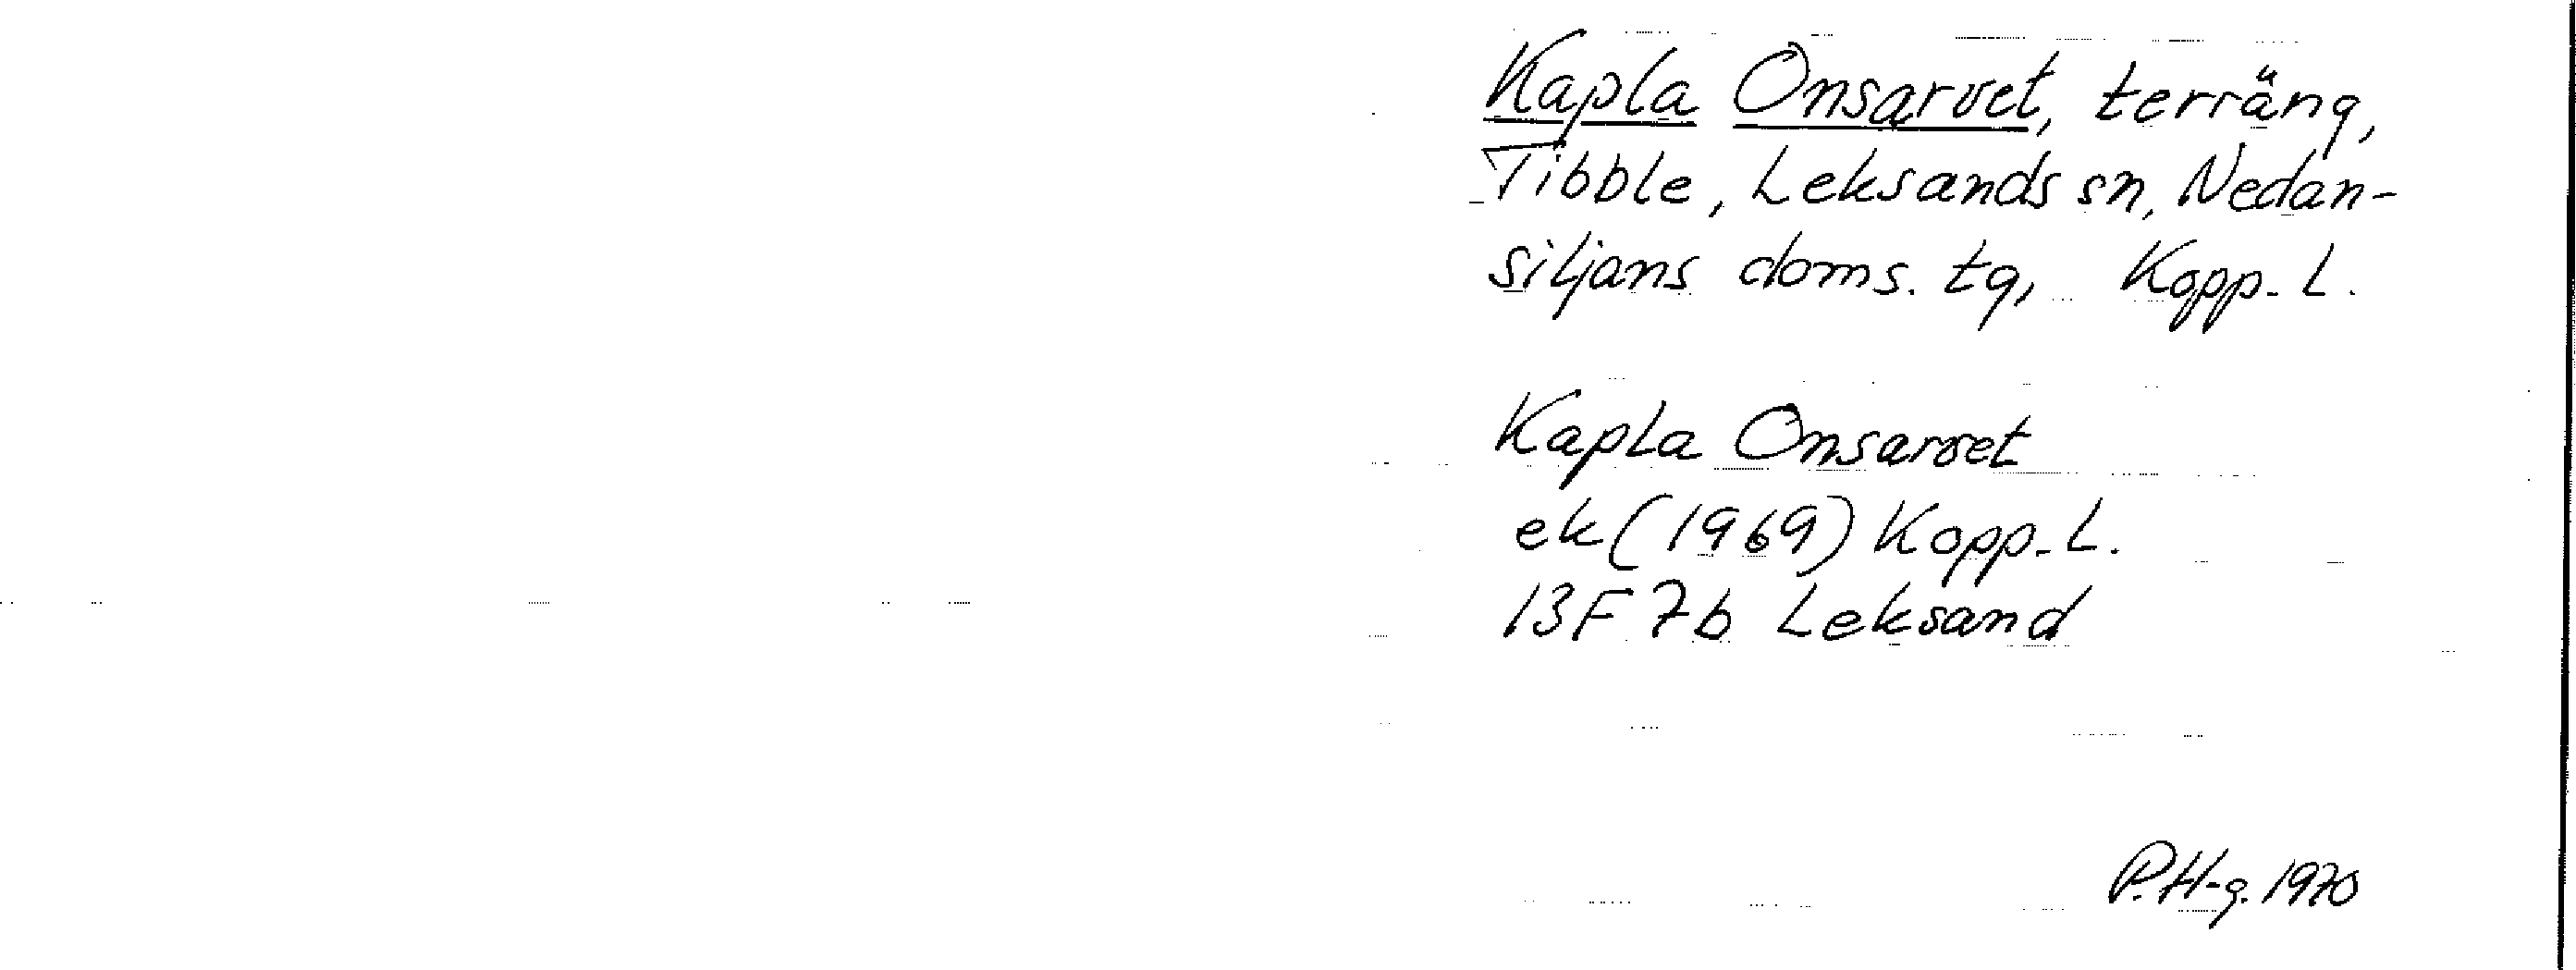 Kapla Onsarvet, terräng,
Tibble, Leksands sn, Nedan-
siljans doms. tg, Kopp. L.
Kapla Onsarvet
ek (1969) Kopp. L.
13F 7b Leksand
P. H-g. 1970